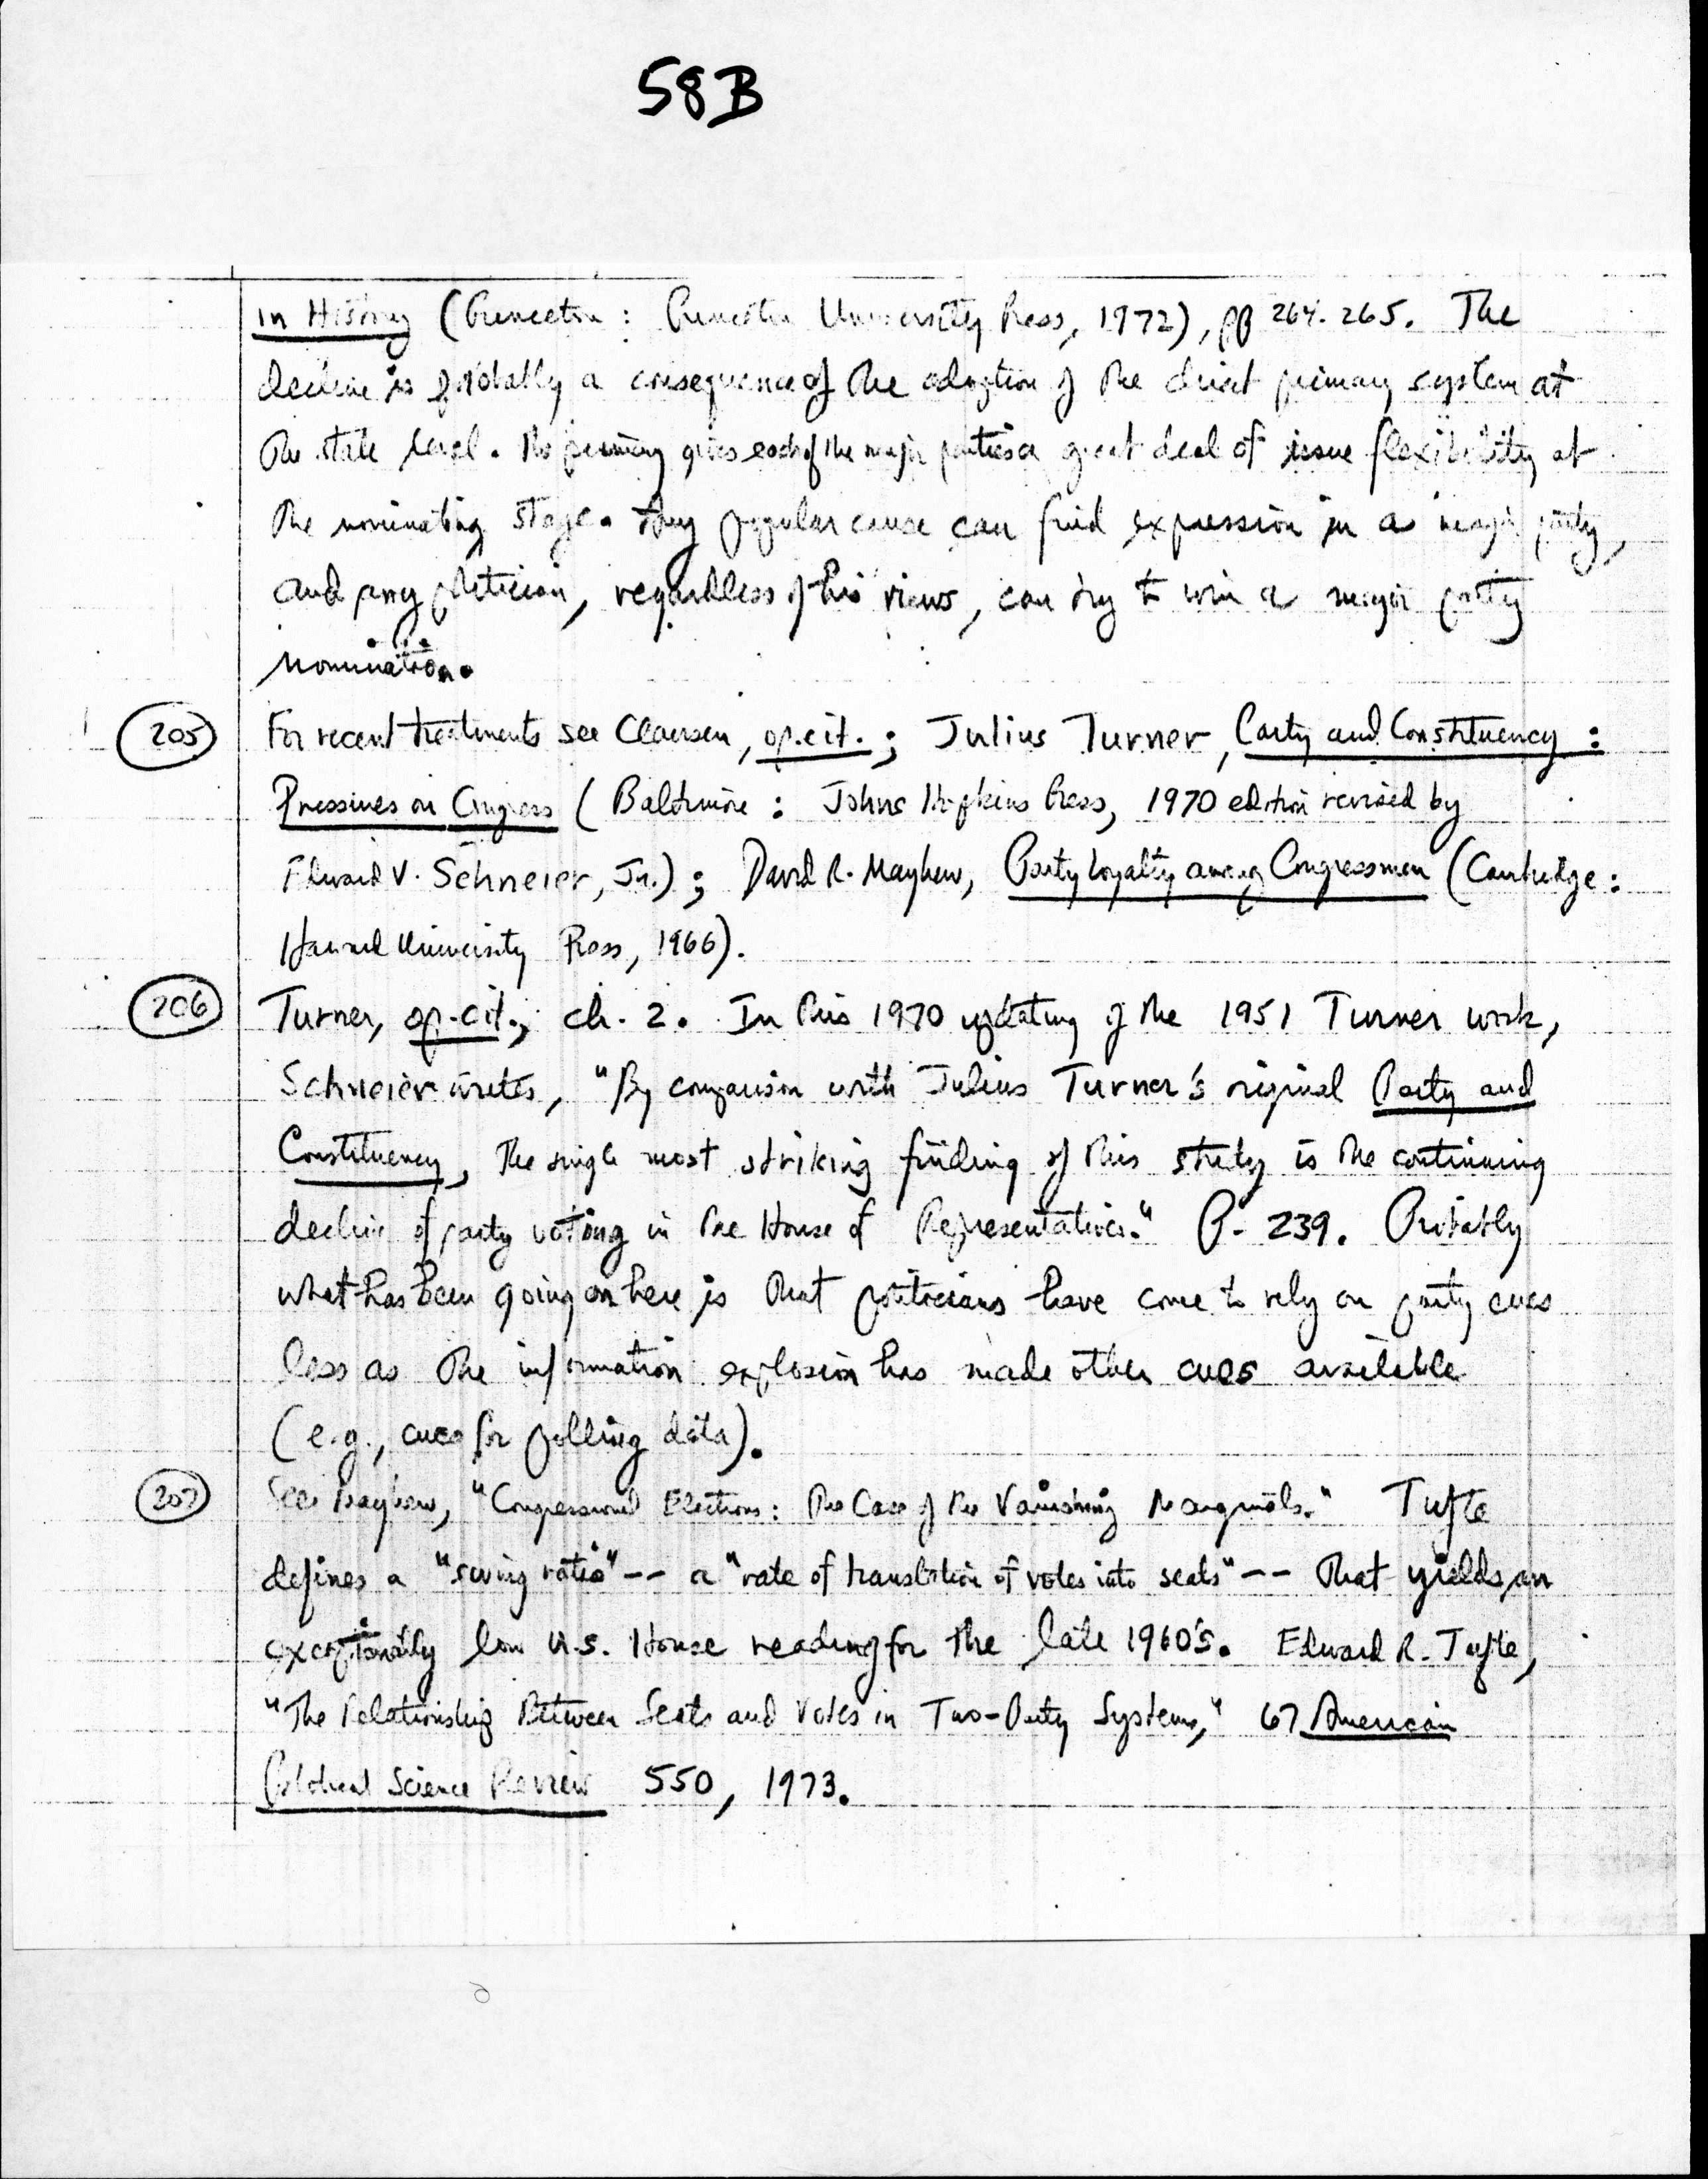 58B
in History (Princeton: Princeton University Press, 1972), pp 264-265. The
decline is probably a consequence of the adoption of the direct primary system at
the state level. The primary gives each of the major parties a great deal of issue flexibility at
the nominating stage. Any popular cause can find expression in a major party,
and any politician, regardless of his views, can try to win a major party
nomination.
205 For recent treatments see Clausen, op.cit.; Julius Turner, Party and Constituency:
Pressures on Congress (Baltimore: Johns Hopkins Press, 1970 edition revised by
Edward V. Schneier, Jr.); David R. Mayhew, Party Loyalty among Congressmen (Cambridge:
Harvard University Press, 1966).
206 Turner, op.cit., ch. 2. In this 1970 updating of the 1951 Turner work,
Schneier writes, "By comparison with Julius Turner's original Party and
Constituency, the single most striking finding of this study is the continuing
decline of party voting in the House of Representatives." P. 239. Probably
what has been going on here is that politicians have come to rely on party cues
less as the information explosion has made other cues available
(e.g., cues for polling data).
207 See Mayhew, "Congressional Elections: The Case of the Vanishing Marginals." Tufte
defines a "swing ratio" -- a "rate of translation of votes into seats" -- that yields an
exceptionally low U.S. House reading for the late 1960's. Edward R. Tufte,
"The Relationship Between Seats and Votes in Two-Party Systems," 67 American
Political Science Review 550, 1973.